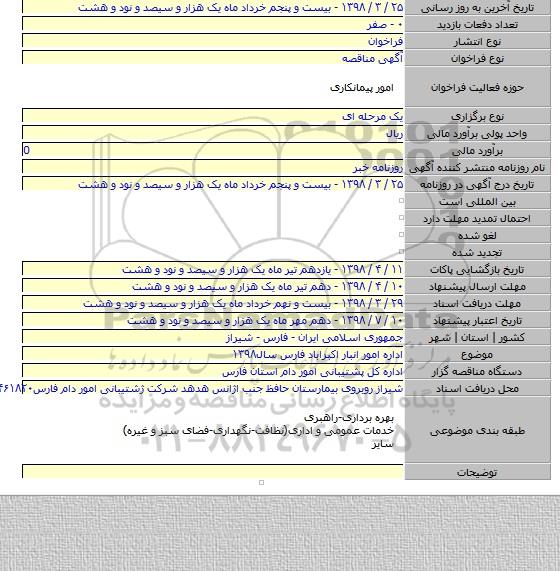 تاریخ آخرین به روز رسانی ۲۵ / ۳ / ۱۳۹۸ - بیست و پنجم خرداد ماه یک هزار و سیصد و نود و هشت
تعداد دفعات بازدید ۰ - صفر
نوع انتشار فراخوان
نوع فراخوان آگهی مناقصه
حوزه فعالیت فراخوان امور پیمانکاری
نوع برگزاری یک مرحله ای
واحد پولی برآورد مالی ریال
برآورد مالی 0
نام روزنامه منتشر کننده آگهی روزنامه خبر
تاریخ درج آگهی در روزنامه ۲۵ / ۳ / ۱۳۹۸ - بیست و پنجم خرداد ماه یک هزار و سیصد و نود و هشت
بین المللی است
احتمال تمدید مهلت دارد
لغو شده
تجدید شده
تاریخ بازگشایی پاکات ۱۱ / ۴ / ۱۳۹۸ - یازدهم تیر ماه یک هزار و سیصد و نود و هشت
مهلت ارسال پیشنهاد ۱۰ / ۴ / ۱۳۹۸ - دهم تیر ماه یک هزار و سیصد و نود و هشت
مهلت دریافت اسناد ۲۹ / ۳ / ۱۳۹۸ - بیست و نهم خرداد ماه یک هزار و سیصد و نود و هشت
تاریخ اعتبار پیشنهاد ۱۰ / ۷ / ۱۳۹۸ - دهم مهر ماه یک هزار و سیصد و نود و هشت
کشور | استان | شهر جمهوری اسلامی ایران - فارس - شیراز
موضوع اداره امور انبار اکبراباد فارس سال۱۳۹۸
دستگاه مناقصه گزار اداره کل پشتیبانی امور دام استان فارس
محل دریافت اسناد شیراز روبروی بیمارستان حافظ جنب اژانس هدهد شرکت ژشتیبانی امور دام فارس
طبقه بندی موضوعی بهره برداری-راهبری
خدمات عمومی و اداری(نظافت-نگهداری-فضای سبز و غیره)
سایر
توضیحات
پایگاه اطلاع رسانی مناقصه و مزایده
۰۲۱-۸۸۳۴۹۶۷۰-۵